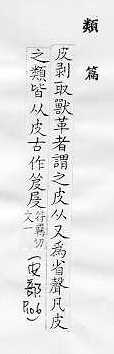 類篇
皮剥取獸革者謂之皮从又為省聲凡皮
之類皆从皮古作笅㞋符羈切文一(皮部P106)